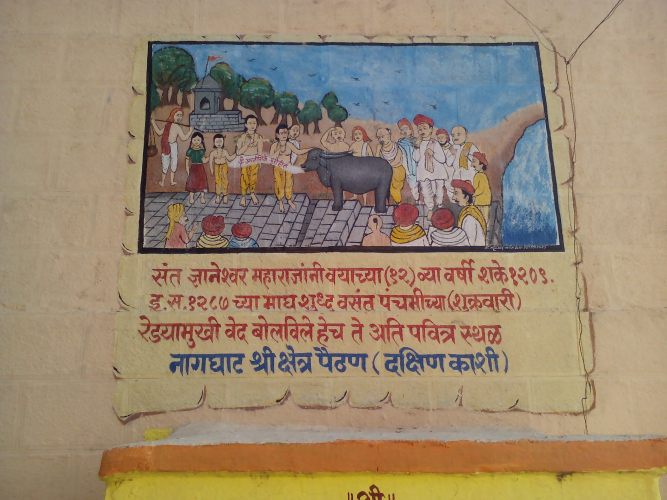 संत ज्ञानेश्वर महाराजांनी वयाच्या (१२) व्या वर्षी शके १२०९.
इ.स.१२८७ च्या माघ शुध्द वसंत पचमीच्या (शुक्रवारी)
रेडयामुखी वेद बोलविले हेच ते अति पवित्र स्थळ
नागघाट श्री क्षेत्र पैठण ( दक्षिण काशी )
॥श्री